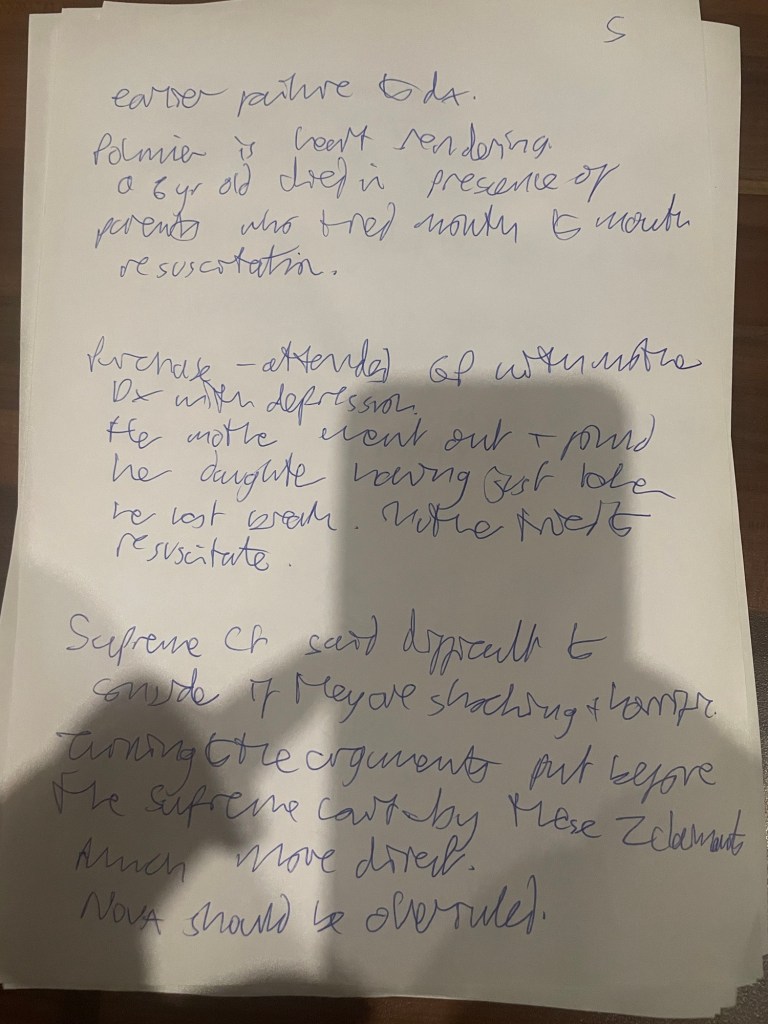 5
earlier failure to dx.
Polmier is heart rendering.
a 6 yr old died in presence of
parents who tried mouth to mouth
resuscitation.
Purchase - attended GP with mothe
Dx with depression.
The mothe went out + found
he daughte having just taken
he last breath. Mothe tried to
resuscitate.
Supreme Ct said difficult to
conside if they are shocking + horrific.
Turning to the arguments put before
the Supreme Court by these 2 claimants
Much more direct.
Nova should be overruled.